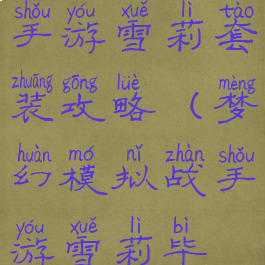 shǒu yóu xuě lì tào
手游雪莉套
zhuāng gōng lüè mèng
装攻略(梦
huàn mó nǐ zhàn shǒu
幻模拟战手
yóu xuě lì bì
游雪莉毕